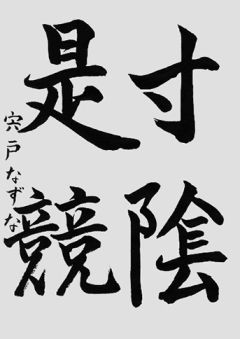 寸陰
是競
宍戸なずな